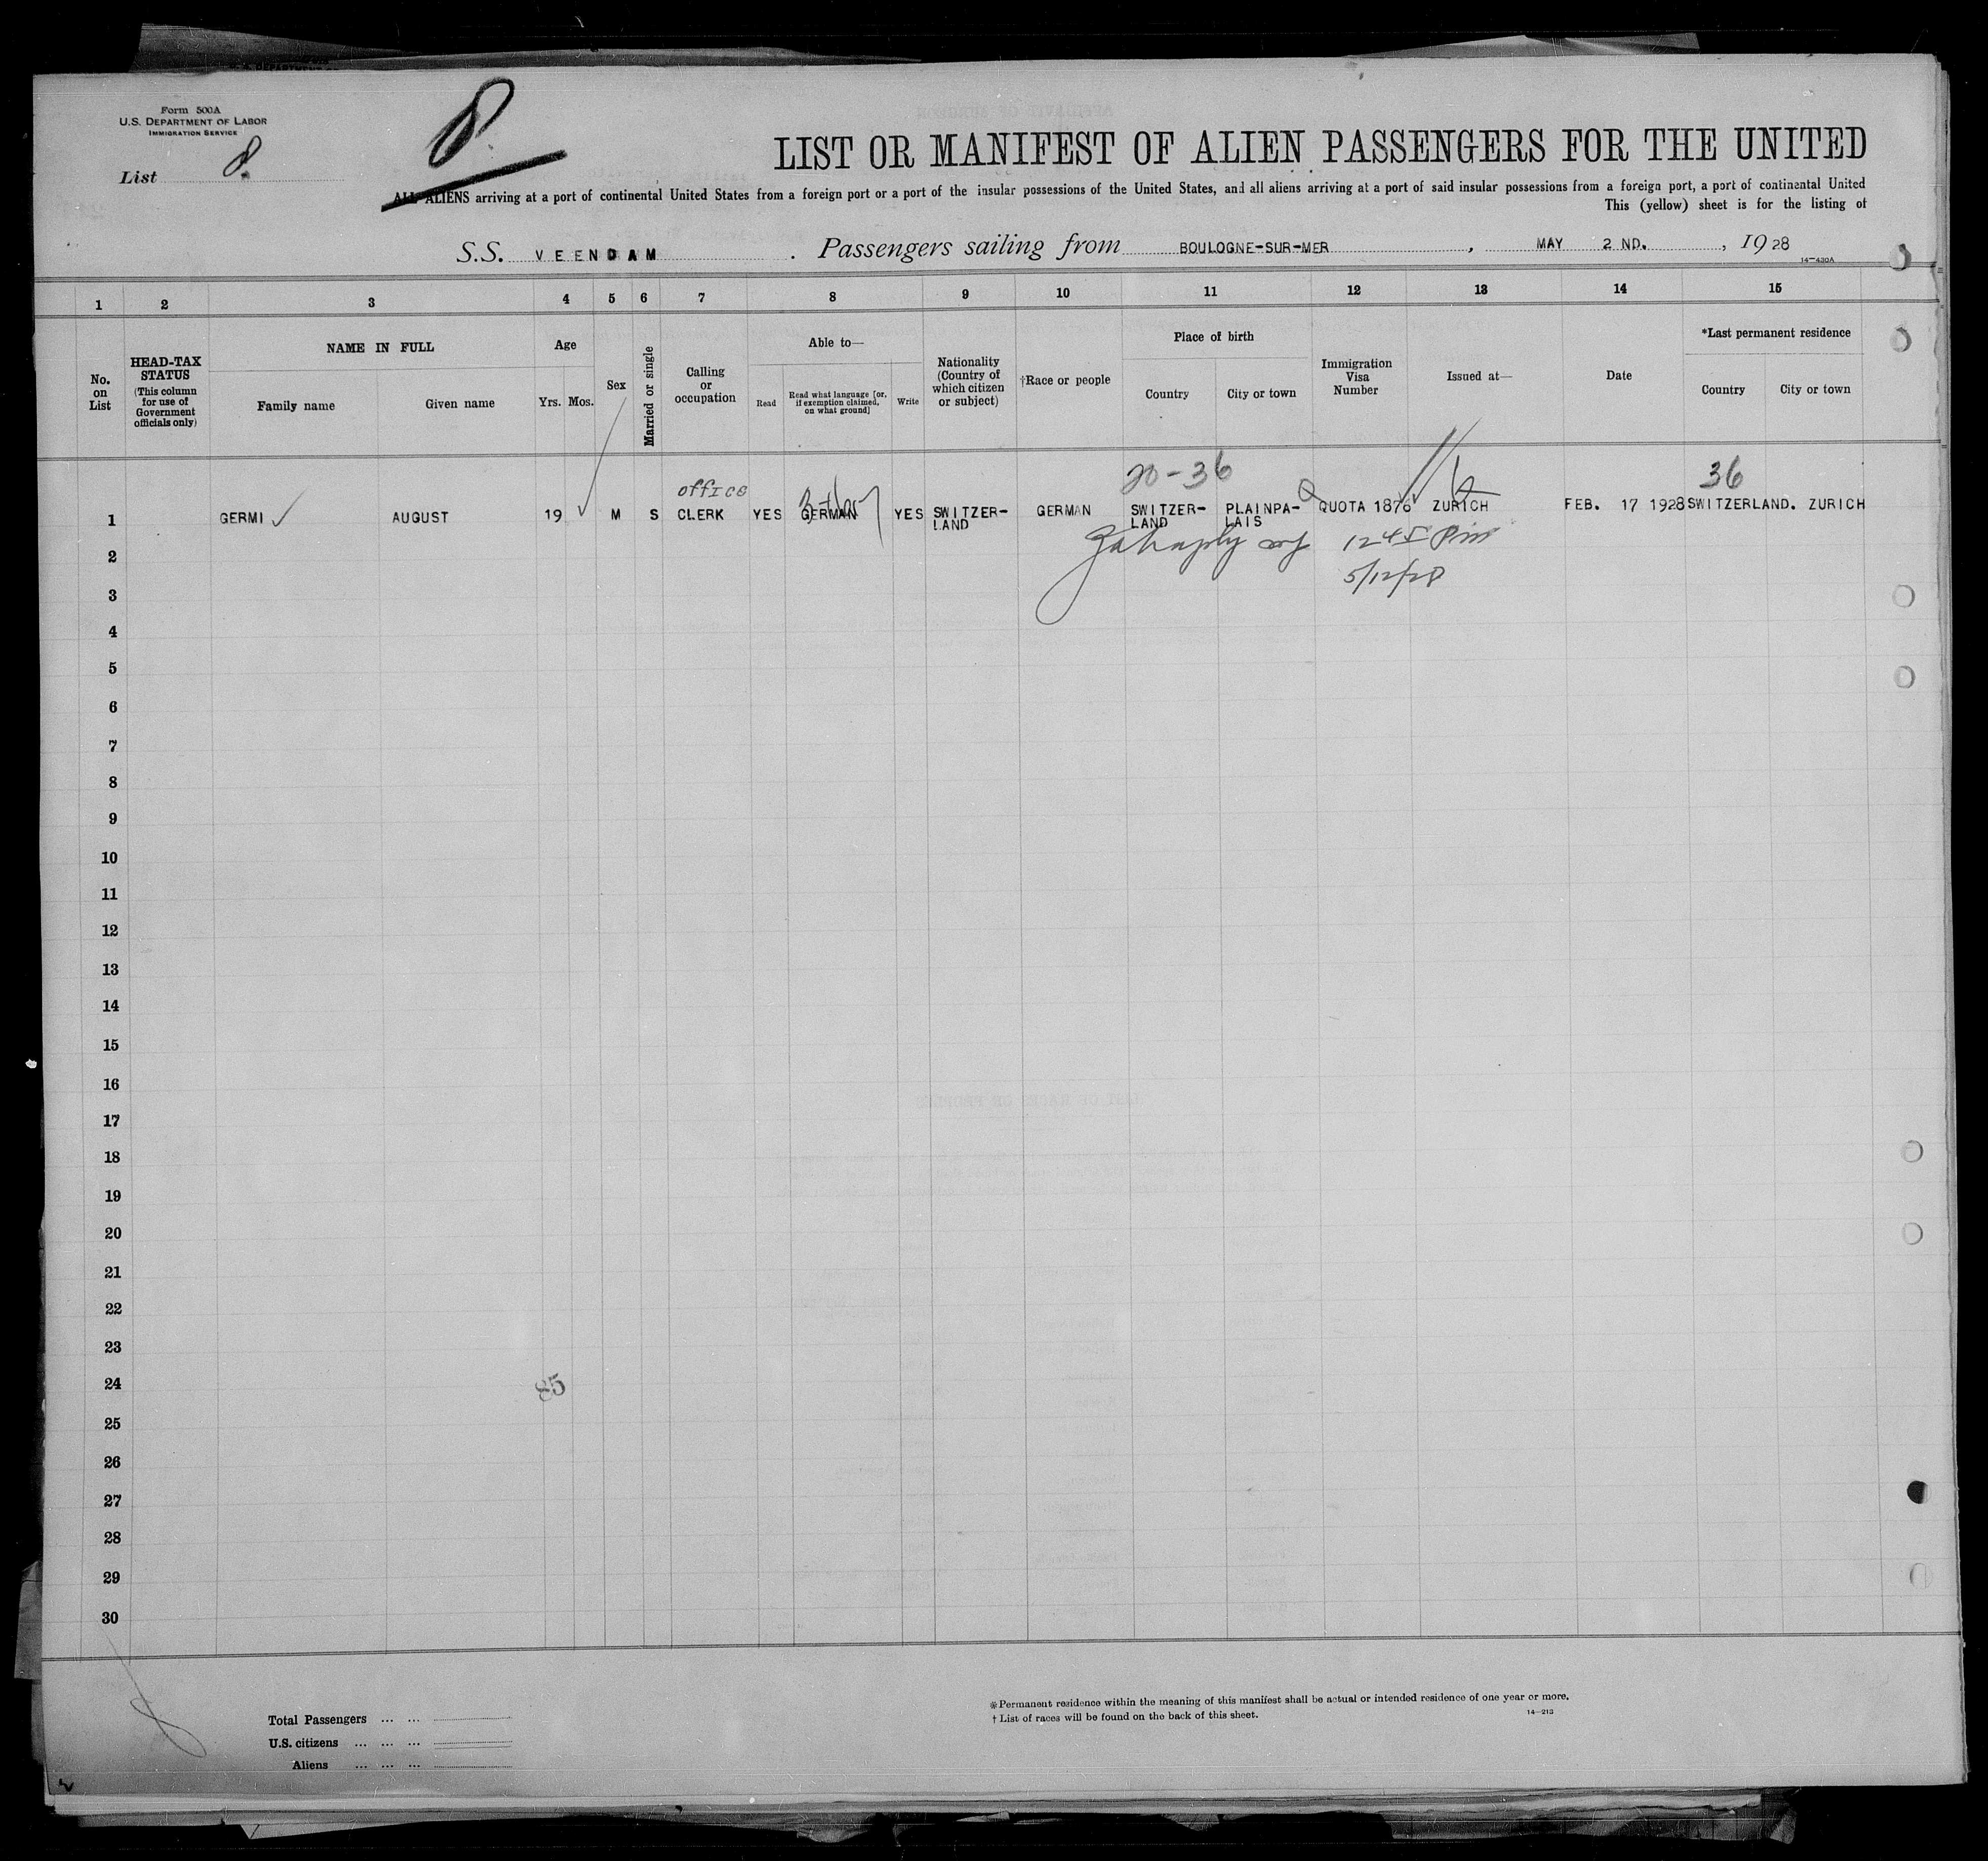 Form 500A
U.S. DEPARTMENT OF LABOR
IMMIGRATION SERVICE
List 8.
8
LIST OR MANIFEST OF ALIEN PASSENGERS FOR THE UNITED
ALL ALIENS arriving at a port of continental United States from a foreign port or a port of the insular possessions of the United States, and all aliens arriving at a port of said insular possessions from a foreign port, a port of continental United
This (yellow) sheet is for the listing of
S.S. VEENDAM. Passengers sailing from BOULOGNE-SUR-MER, MAY 2 ND., 1928
14-430A
1 2 3 4 5 6 7 8 9 10 11 12 13 14 15
No. on List
HEAD-TAX STATUS
(This column for use of Government officials only)
NAME IN FULL
Family name Given name
Age
Yrs. Mos.
Sex
Married or single
Calling or occupation
Able to—
Read
Read what language [or, if exemption claimed, on what ground]
Write
Nationality (Country of which citizen or subject)
†Race or people
Place of birth
Country City or town
Immigration Visa Number
Issued at—
Date
*Last permanent residence
Country City or town
office 20-36 36
1 GERMI AUGUST 19 M S CLERK YES GERMAN YES SWITZER- GERMAN SWITZER- PLAINPA- QUOTA 1876 ZURICH FEB. 17 1928 SWITZERLAND. ZURICH
LAND LAND LAIS
2
5/12/28
3
4
5
6
7
8
9
10
11
12
13
14
15
16
17
18
19
20
21
22
23
24 85
25
26
27
28
29
30
Total Passengers ... ...
U.S. citizens ... ... ...
Aliens ... ... ...
*Permanent residence within the meaning of this manifest shall be actual or intended residence of one year or more.
† List of races will be found on the back of this sheet.
14-213